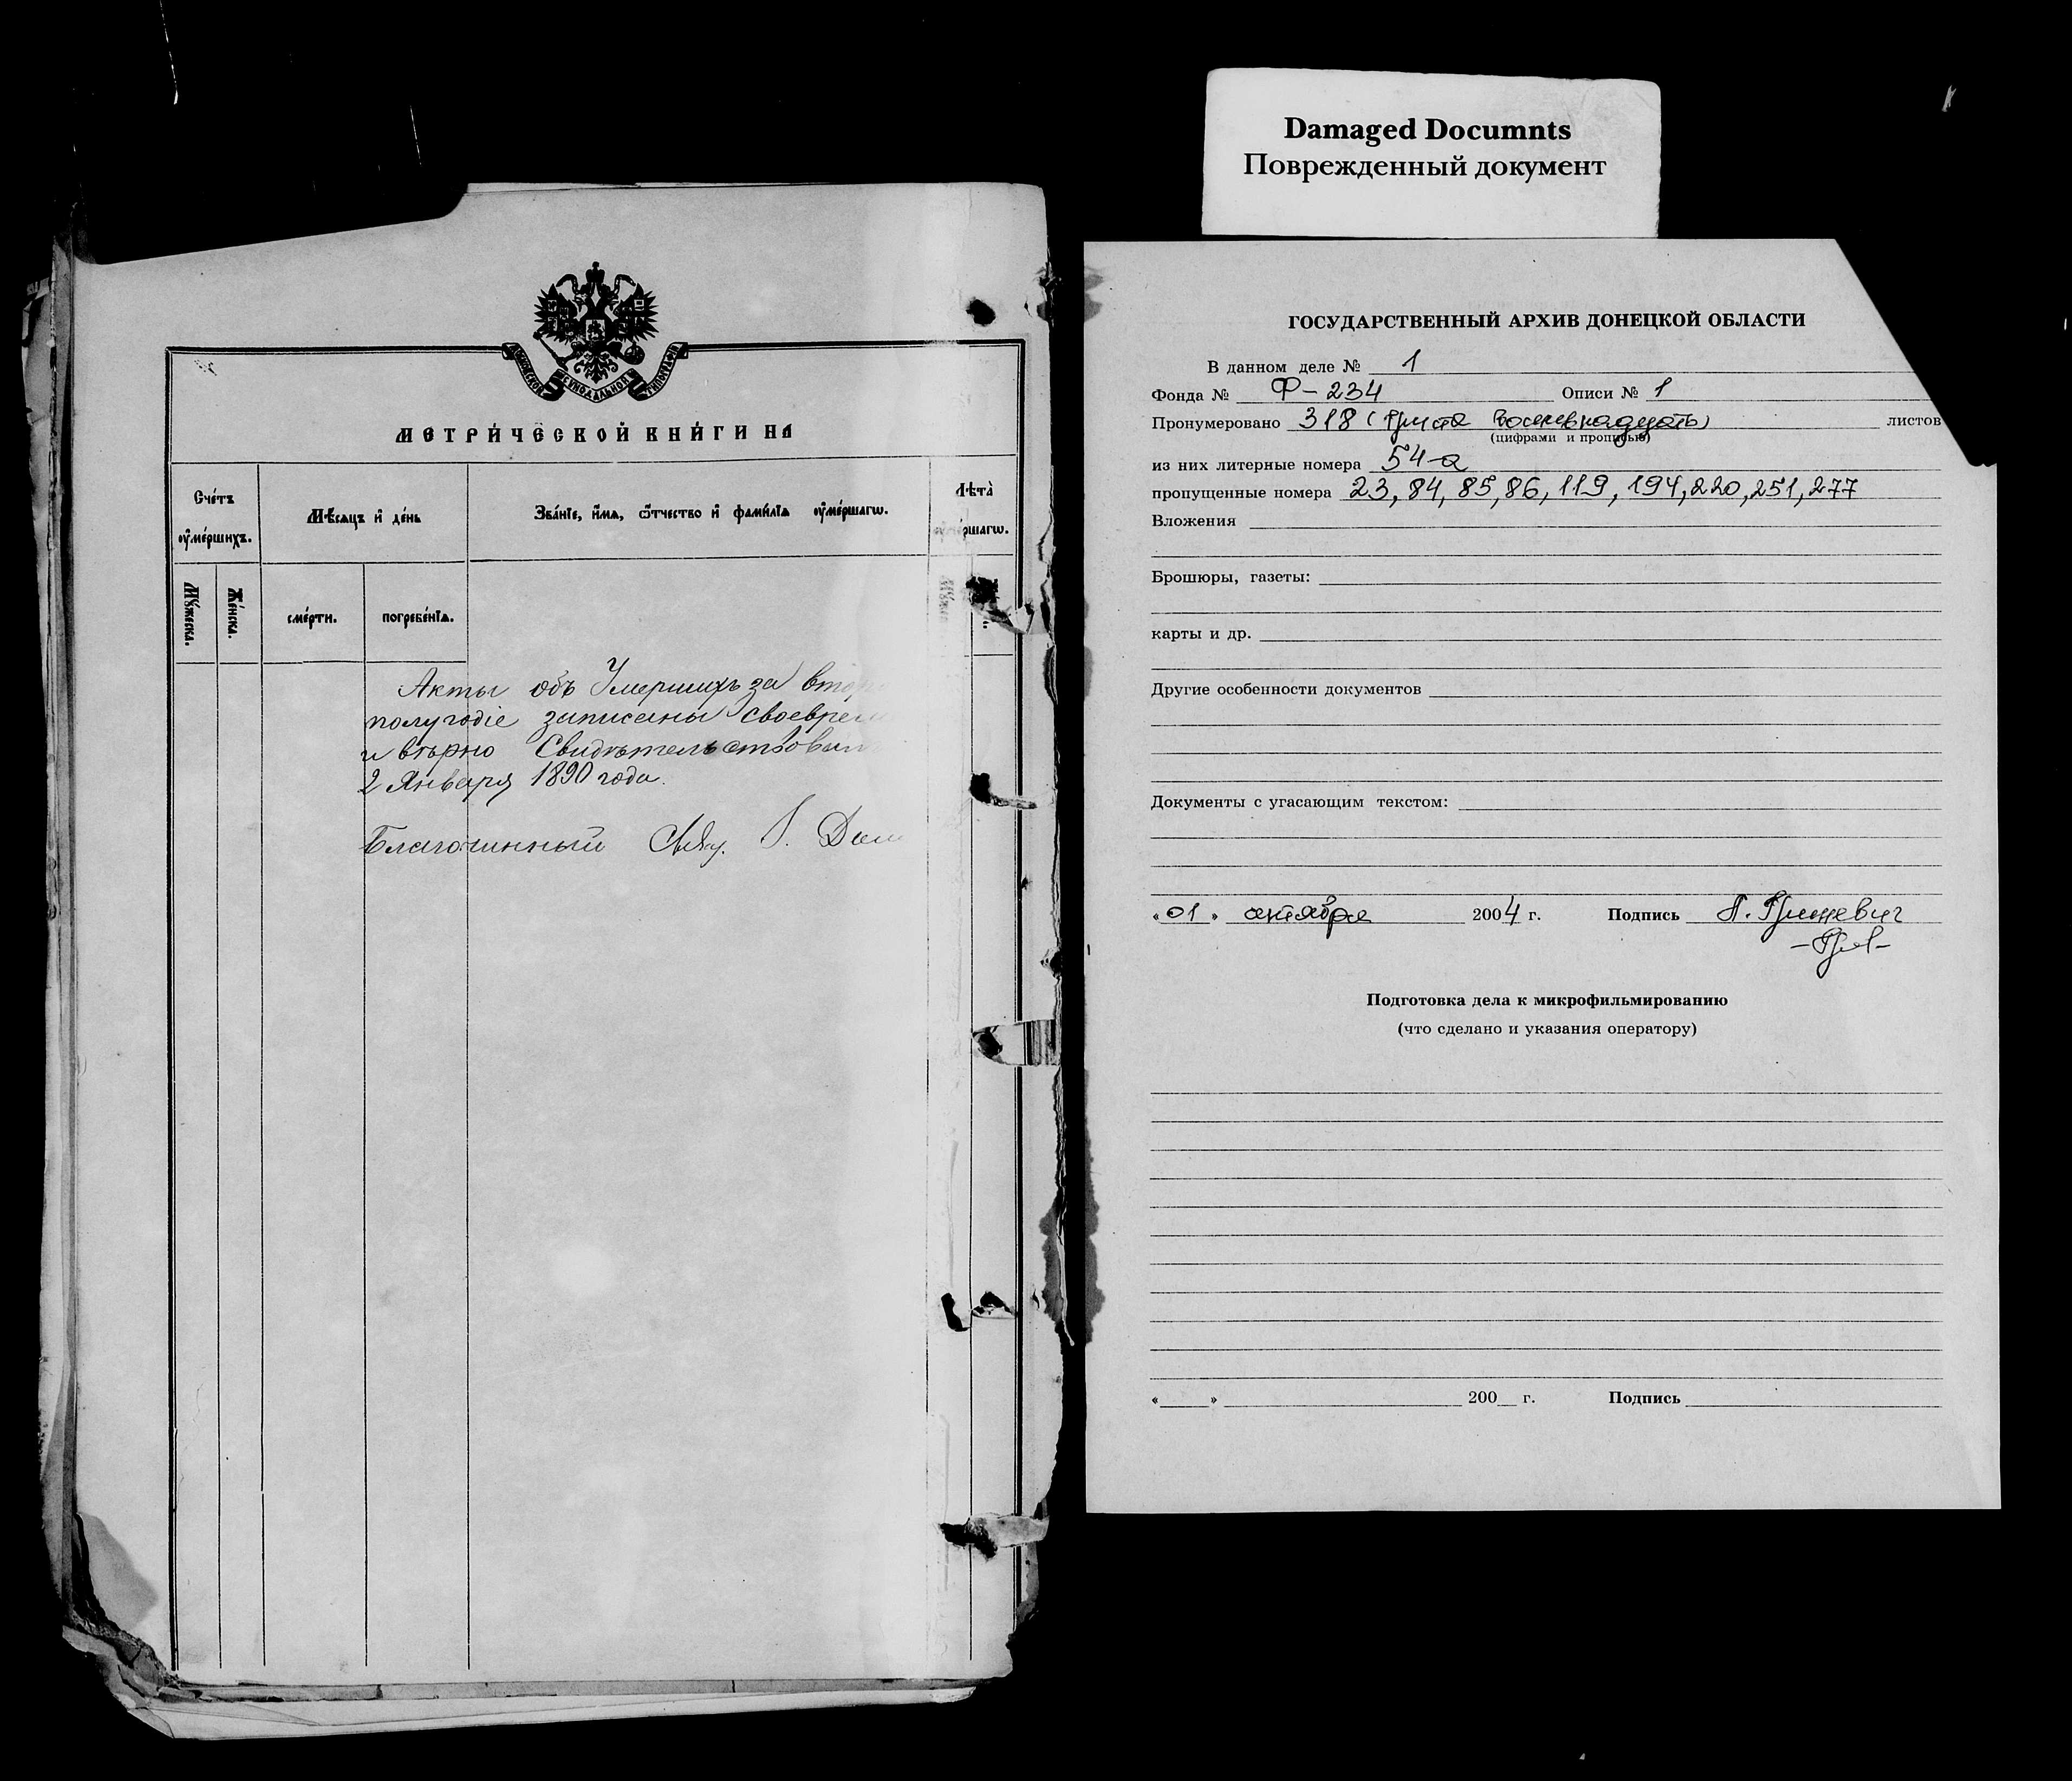 МОСКОВСКОЙ СѴНОДАЛЬНОЙ ТИПОГРАФІИ
МЕТРИ́ЧЕСКОЙ КНИ́ГИ НА
Сче́тъ ᲂу҆ме́ршихъ.
Мѣ́сѧцъ и҆ де́нь
Зва́нїе, и҆́мѧ, ѻ҆́тчество и҆ фами́лїѧ ᲂу҆ме́ршагѡ.
Лѣта̀
ршагѡ.
Мꙋ́жеска.
Же́нска.
сме́рти.
погребе́нїѧ.
Акты объ Умершихъ за втор
полугодіе записаны своеврем
и вѣрно Свидѣтельствовал
2 Января 1890 года.
Благочинный
Damaged Documnts
Поврежденный документ
ГОСУДАРСТВЕННЫЙ АРХИВ ДОНЕЦКОЙ ОБЛАСТИ
В данном деле № 1
Фонда № Ф-234 Описи № 1
Пронумеровано 318 (Триста восемнадцать) листов
(цифрами и прописью)
из них литерные номера 54-а
пропущенные номера 23, 84, 85, 86, 119, 194, 220, 251, 277
Вложения
Брошюры, газеты:
карты и др.
Другие особенности документов
Документы с угасающим текстом:
«01» октября 2004 г. Подпись
Подготовка дела к микрофильмированию
(что сделано и указания оператору)
« » 200 г. Подпись